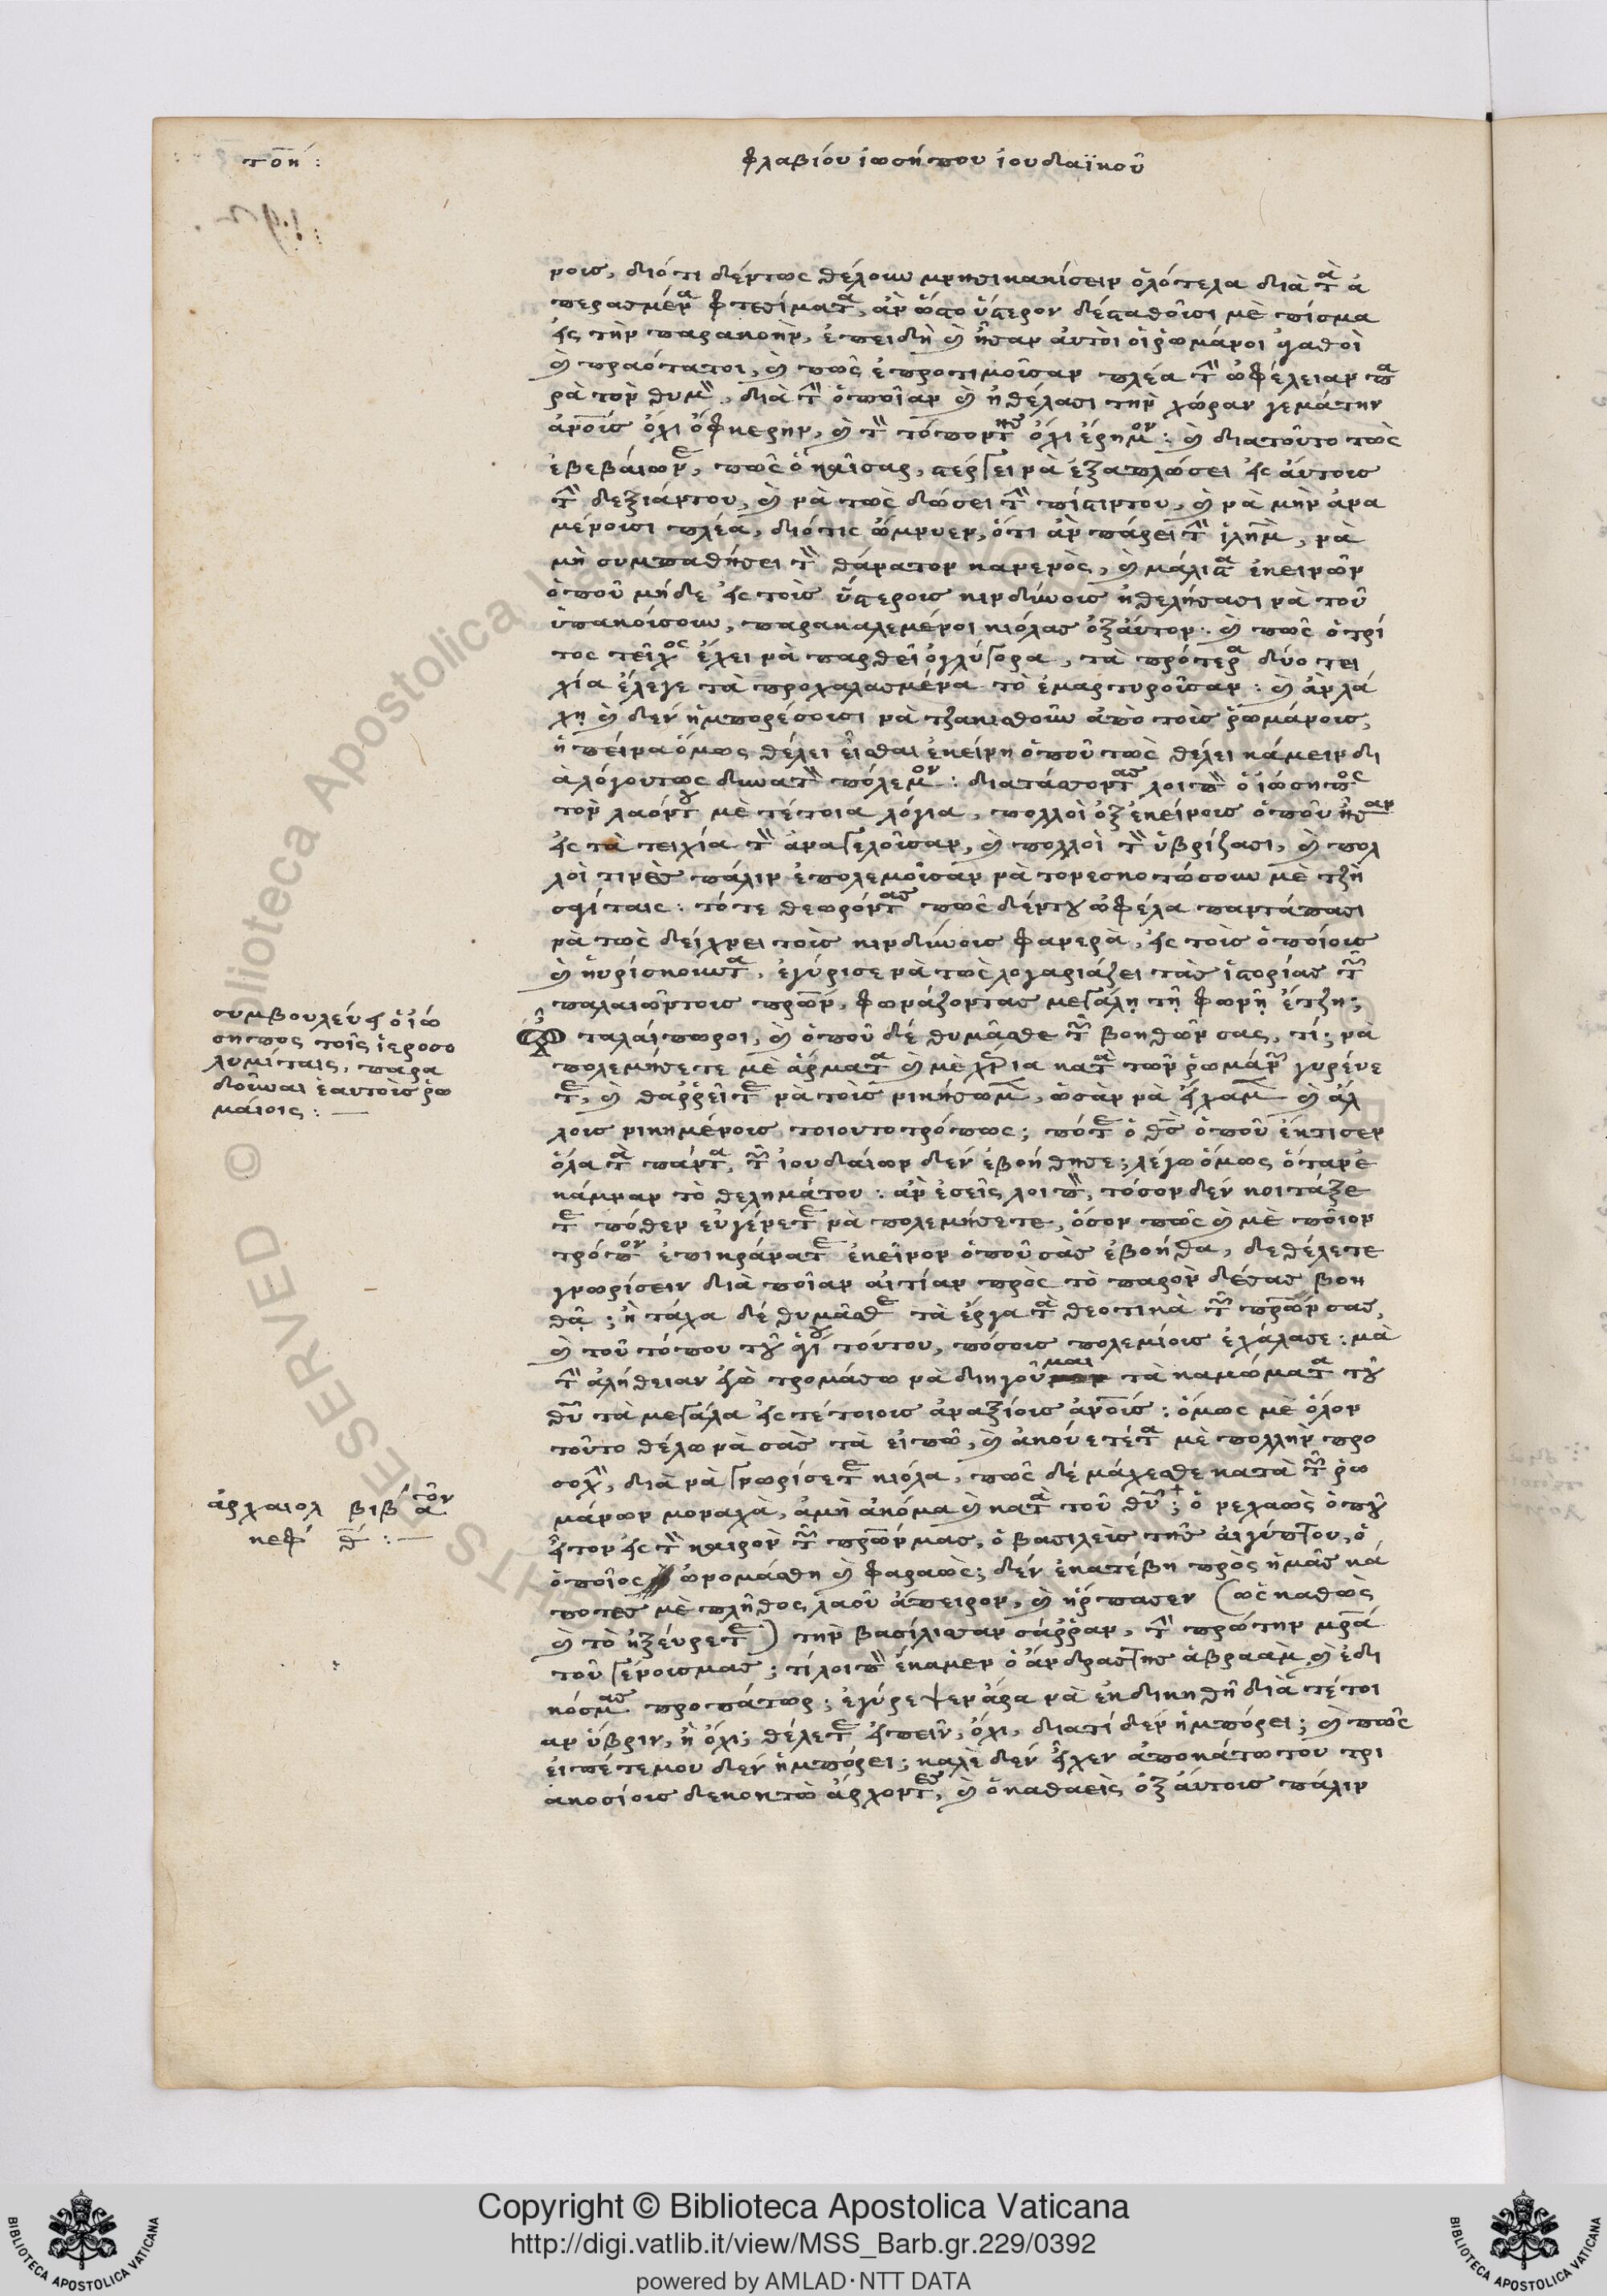 τοη :
φλαβίου ἰωσήπου ἰουδαϊκοῦ
νοις, διότι δέντως θέλουν μνησικακίσειν ὁλότελα διὰ τὰ ἀ
περασμένα φτεσίματα, ἀν ὥστο ὕστερον δέσταθοῦσι μὲ πίσμα
εἰς τὴν παρακοὴν, ἐπειδὴ ἦσαν αὐτοὶ οἱ ῥωμάνοι ἀγαθοὶ
πραότατοι, πῶς ἐπροτιμοῦσαν πλέα τὴν ὠφέλειαν πα
ρὰ τὸν θυμὸν, διὰ τὴν ὁποῖαν ἠθέλασι τὴν χώραν γεμάτην
ὄχι εὔκερην, τὸν τόποντης ὄχι ἔρημον : διατοῦτο τὼς
ἐβεβαίωνε, πῶς ὁ καῖσαρ, στέργει νὰ ἐξαπλώσει εἰς αὐτους
τὴν δεξιάντου, νὰ τὼς δώσει τὴν πίστιντου, νὰ μὴν ἀνα
μένουσι πλέα, διότις ὤμνυεν, ὅτι ἀν πάρει τὴν ἱλημ, νὰ
μὴ συμπαθήσει τὸν θάνατον κανενὸς, μάλιστα ἐκεινῶν
ὁποῦ μήδε εἰς τοὺς ὕστερους κινδύνους ἠθελήσασι νὰ τοῦ
ὑπακούσουν, παρακαλεμένοι κιόλας ὀξαύτον : πῶς ὁ τρί
τος τεῖχος ἔχει νὰ παρθεῖ ὀγλύγορα, τὰ πρότερα δύο τει
χία ἔλεγε τὰ προχαλασμένα τὸ ἐμαρτυροῦσαν : ἀν λά
χῃ δεν ἠμπορέσουσι νὰ τζακισθοῦν ἀπὸ τοὺς ῥωμάνους,
ἡ πείνα ὅμως θέλει εἶσθαι ἐκείνη ὁποῦ τὼς θέλει κάμειν δι
ἀλόγουτως δυνατὸν πόλεμον : διατάσσοντας λοιπὸν ὁ ἰώσηπος
τὸν λαόντου μὲ τέτοια λόγια, πολλοὶ ὀξ ἐκείνους ὁποῦ ἦσαν
εἰς τὰ τειχία τὸν ἀναγελοῦσαν, πολλοὶ τὸν ὑβρίζασι, πολ
λοὶ τινὲς πάλιν ἐπολεμοῦσαν νὰ τονεσκοτώσουν μὲ τζὴ
σαγίταις : τότε θεωρόντας πῶς δέντου ὠφέλα παντάπασι
νὰ τὼς δείχνει τοὺς κινδύνους φανερὰ, εἰς τοὺς ὁποίους
ηὑρίσκουντα, ἐγύρισε νὰ τὼς λογαριάζει τὰς ἱστορίας τῶν
παλαιῶντους φωνάζοντας μεγάλῃ τῇ φωνῇ ἔτζη :
ταλαίπωροι, ὁποῦ δέ θυμᾶσθε τῶν βοηθῶν σας, τί ; νὰ
πολεμήσετε μὲ ἄρματα μὲ κατὰ τῶν ῥωμάνων γυρένε
τε, θαῤῥεῖτε νὰ τοὺς νικήσωμε, ὡσὰν νὰ εἴχαμε ἀλ
λους νικημένους τοιουτοτρόπως ; πότε ὁ θς ὁποῦ ἔκτισεν
ὅλα τὰ πάντα, τῶν ἰουδαίων δεν ἐβοήθησε ; λέγω ὅμως ὅτανε
κάμναν τὸ θελημάτου : ἀν ἐσεῖς λοιπὸν, τόσον δεν κοιτάξε
τε πόθεν εὐγένετε νὰ πολεμήσετε, ὅσον πῶς μὲ ποῖον
τρόπον ἐπικράνατε ἐκεῖνον ὁποῦ σὰς ἐβοήθα, δεθέλετε
γνωρίσειν διὰ ποῖαν αἰτίαν πρὸς τὸ παρὸν δέσας βοη
θᾷ ; ἢ τάχα δέ θυμᾶσθε τὰ ἔργα τὰ θεοτικὰ τῶν σας,
τοῦ τόπου τοῦ ἁγίου τούτου, πόσους πολεμίους ἐχάλασε : μὰ
τὴν ἀλήθειαν ἐγὼ τρομάσω νὰ διηγοῦμαι τὰ καμώματα τοῦ
θῦ τὰ μεγάλα εἰς τέτοιους ἀναξίους ἀνους : ὅμως μὲ ὅλον
τοῦτο θέλω νὰ σὰς τὰ εἰπῶ, ἀκούετέτα μὲ πολλὴν προ
σοχὴν, διὰ νὰ γνωρίσετε κιόλα, πῶς δέ μάχεσθε κατὰ τῶν ῥω
μάνων μοναχὰ, ἀμὴ ἀκόμα κατὰ τοῦ θῦ ; ὁ νεχαὼς ὁποῦ
ἦτον εἰς τὸν καιρὸν τῶν μας, ὁ βασιλεὺς τῆς αἰγύπτου, ὁ
ὁποῖος ὠνομάσθη φαραὼς ; δεν ἐκατέβη πρὸς ἡμᾶς κά
ποτες μὲ πλῆθος λαοῦ ἄπειρον, ἥρπασεν (ὡς καθὼς
τὸ ἠξεύρετε) τὴν βασίλισσαν σάῤῥαν, τὴν πρώτην μρα
τοῦ γένουςμας ; τί λοιπὸν ἔκαμεν ὁ ἄνδραςτης ἀβραὰμ, ἐδι
κόςμας προπάτωρ ; ἐγύρεψεν ἄρα νὰ ἐκδικηθῇ διὰ τέτοι
αν ὕβριν, ἢ ὄχι ; θέλετε εἰπεῖν, ὄχι, διατί δεν ἠμπόρει ; πῶς
εἰπέτεμου δεν ἠμπόρει ; καλὲ δεν εἶχεν ἀποκάτω του τρι
ακοσίους δεκοκτὼ ἄρχοντες, ὁ καθαεὶς ὀξ αὐτους πάλιν
συμβουλεύει ὁ ἰώ
σηπος τοῖς ἱεροσο
λυμίταις, παρα
δοῦναι ἑαυτοὺς ῥω
μαίοις : —
ἀρχαιολ βιβ τὸν α
κεφ :—
Copyright © Biblioteca Apostolica Vaticana
http://digi.vatlib.it/view/MSS_Barb.gr.229/0392
powered by AMLAD·NTT DATA
BIBLIOTECA APOSTOLICA VATICANA
BIBLIOTECA APOSTOLICA VATICANA